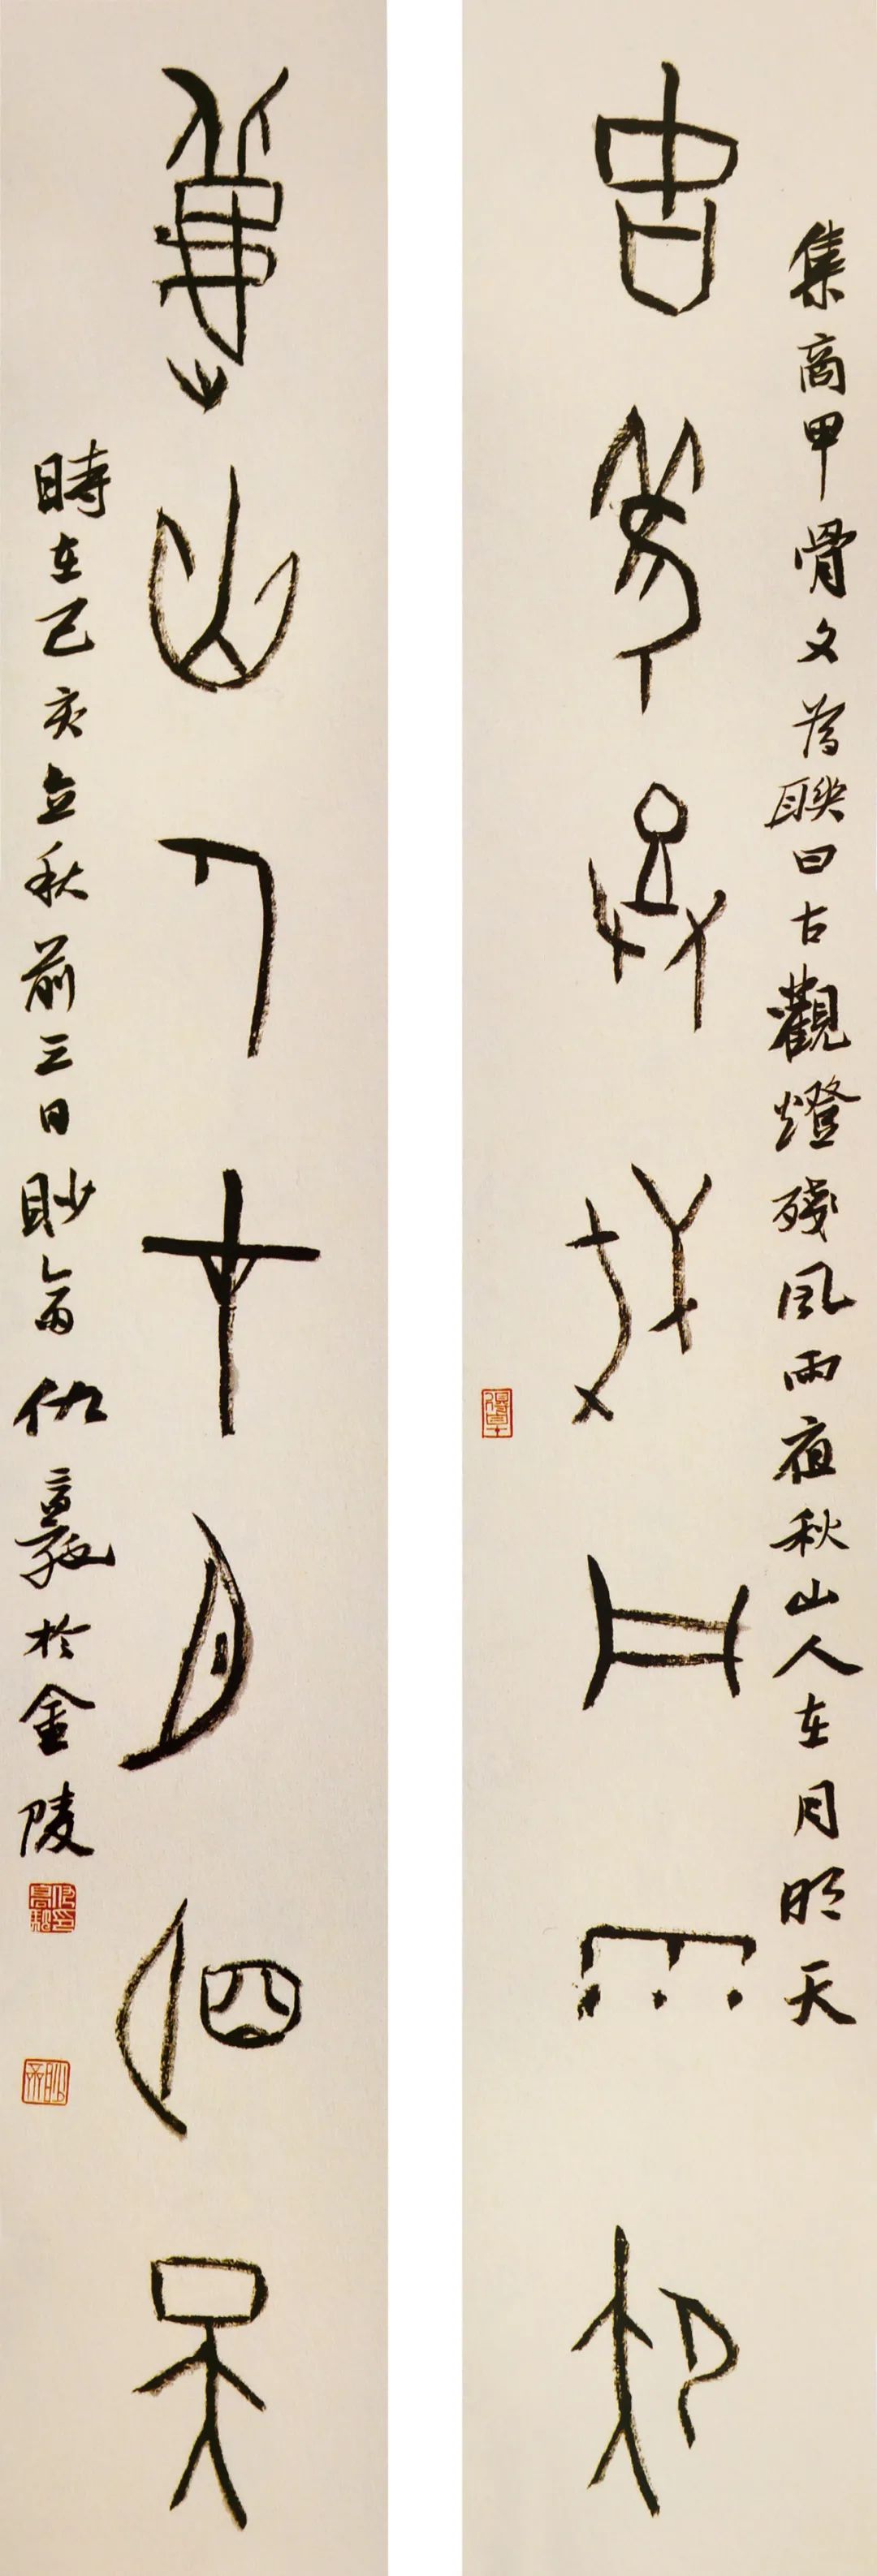 集商甲骨文為聯曰古觀燈殘風雨夜秋山人在月明天
古觀燈殘風雨夜
秋山人在月明天
時在己亥立秋前三日眇斋仇高馳於金陵